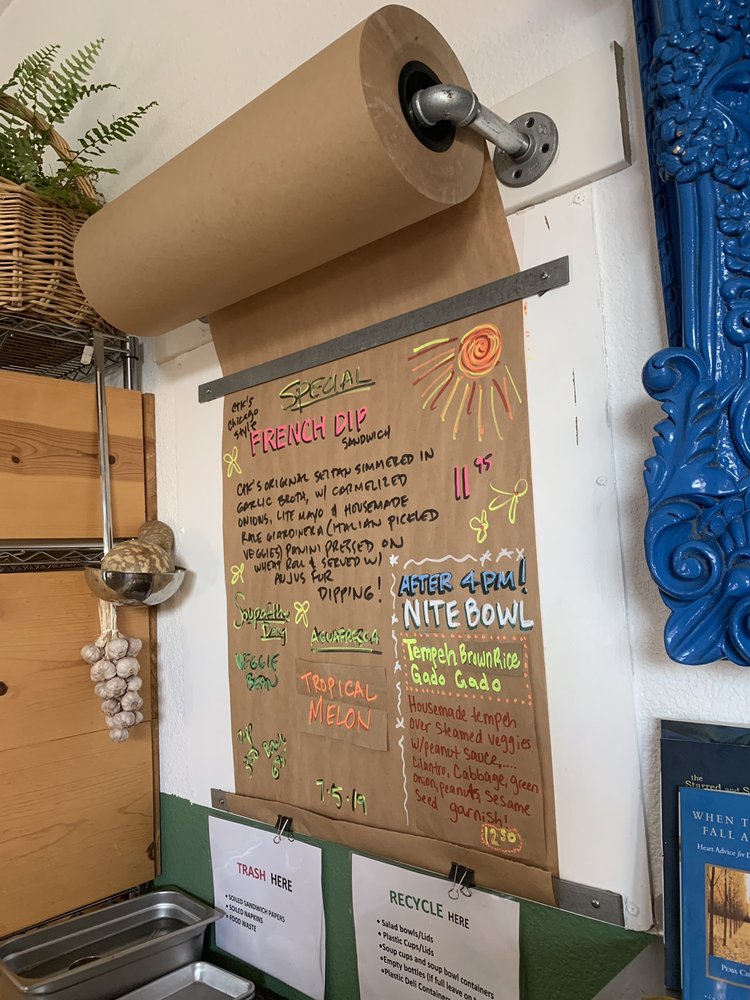 SPECIAL
CTK's
Chicago
Style
FRENCH DIP
SANDWICH
11 95
CTK'S ORIGINAL SEITAN SIMMERED IN
GARLIC BROTH, W/ CARMELIZED
ONIONS, LITE MAYO & HOUSEMADE
KALE GIARDINERA (ITALIAN PICKLED
VEGGIES) PANINI PRESSED ON
WHEAT ROLL & SERVED W/
AUJUS FOR
DIPPING!
Soup of the
Day
VEGGIE
BEAN
Bowl
AGUAFRESCA
TROPICAL
MELON
7.5.19
AFTER 4 PM!
NITE BOWL
Tempeh Brown Rice
Gado Gado
Housemade tempeh
over Steamed Veggies
w/peanut sauce,....
Cilantro, Cabbage, green
onion, peanuts, Sesame
Seed garnish!
12 50
TRASH HERE
• SOILED SANDWICH PAPERS
• SOILED NAPKINS
• FOOD WASTE
RECYCLE HERE
• Salad bowls/Lids
• Plastic Cups/Lids
• Soup cups and soup bowl containers
• Empty bottles (if full leave on
• Plastic Deli Containers
the
Starred and
WHEN T
FALL A
Heart Advice for
PEMA